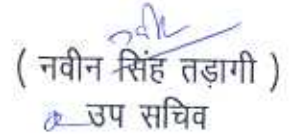 ( नवीन सिंह तड़ागी )
उप सचिव